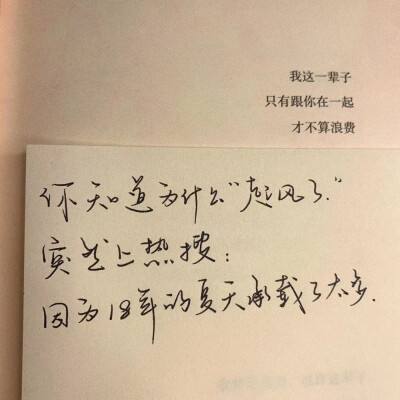 我这一辈子
只有跟你在一起
才不算浪费
你知道为什么“起风了.”
突然上热搜：
因为18年的夏天承载了太多.